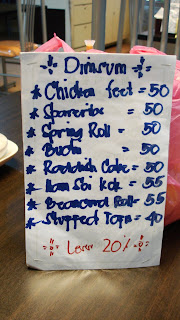 Dimsum
* Chicken feet = 50
* Spareribs = 50
* Spring Roll = 50
* Buchi = 50
* Raddish Cake = 50
* Ham Sbi Kok = 55
* Beancurd Roll = 55
* Stuffed Tofu = 40
Less 20%